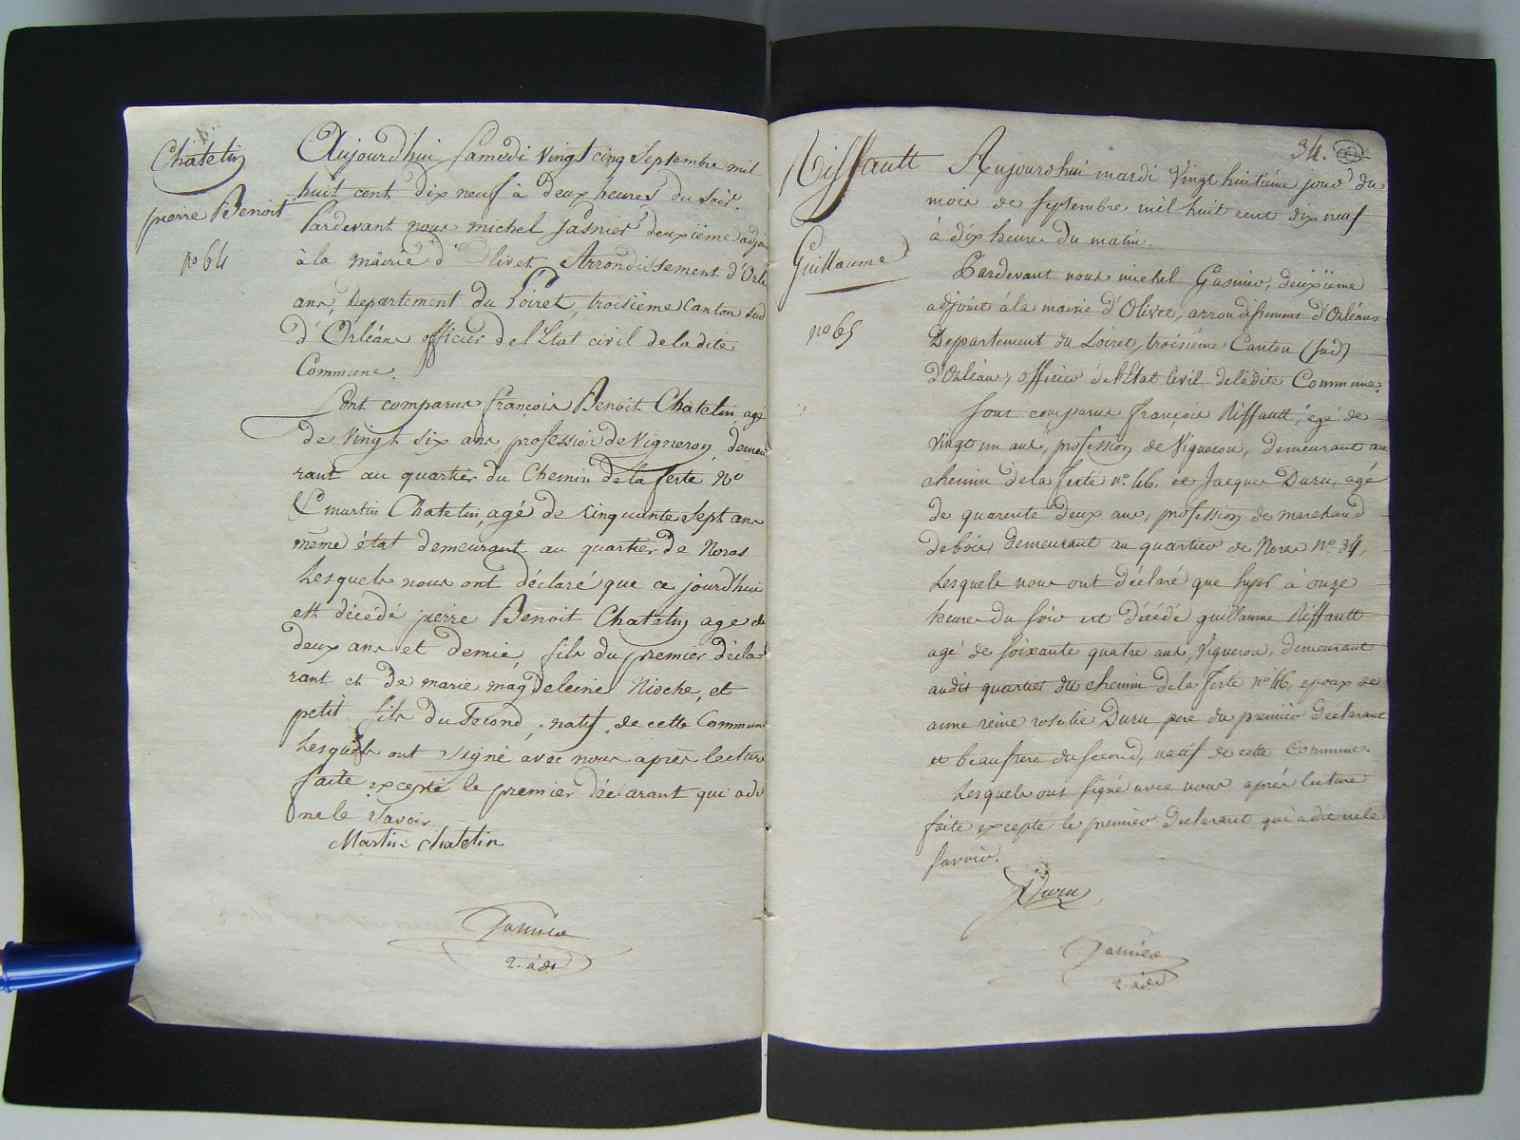 Chatelin
pierre Benoit
no 64
Aujourd'hui Samedi vingt cinq Septembre mil
huit cent dix neuf à deux heures du soir.
Pardevant nous michel Gasnier deuxième adjoint
à la mairie d'Olivet Arrondissement d'Orlé
ans, Departement du Loiret, troisième Canton sud
d'Orléans officier de l'Etat civil de la dite
Commune.
Sont comparus françois Benoit Chatelin, agé
de vingt six ans profession de Vigneron, demeu
rant au quartier du Chemin de la ferté No
& martin Chatelin, agé de cinquante sept ans
même état demeurant au quartier de Noras
Lesquels nous ont déclaré que ce jourd'hui
est décédé pierre Benoit Chatelin age de
deux ans et demie, fils du premier décla
rant et de marie magdeleine Nioche, et
petit fils du Second, natif de cette Commune
Lesquels ont signé avec nous après lecture
faite excepté le premier déclarant qui a dit
ne le Savoir
Martin Chatelin
Gasnier
2. adt
34.
Riffault
Guillaume
no 65
Aujourd'hui mardi Vingt huitième jour du
mois de Septembre mil huit cent dix neuf
à dix heures du matin.
Pardevant nous michel Gasnier, deuxième
adjoint à la mairie d'Olivet, arrondissement d'Orléans
Departement du Loiret, troisième Canton (sud)
d'Orléans, officier de l'Etat Civil de ladite Commune.
Sont comparus François Riffault, agé de
vingt un ans, profession de Vigneron, demeurant au
chemin de la Ferté no. 46. et Jacques Duru, agé
de quarente deux ans, profession de marchand
de bois demeurant au quartier de Noras No. 34,
Lesquels nous ont déclaré que hyer à onze
heures du soir est décédé guillaume Riffault
agé de soixante quatre ans, Vigneron, demeurant
audit quartier du chemin de la Ferté no 46, epoux de
anne reine rosalie Duru pere du premier déclarant
et beaufrere du second, natif de cette Commune.
Lesquels ont signé avec nous après lecture
faite excepté le premier déclarant qui a dit ne le
savoir.
Duru
Gasnier
2. adt